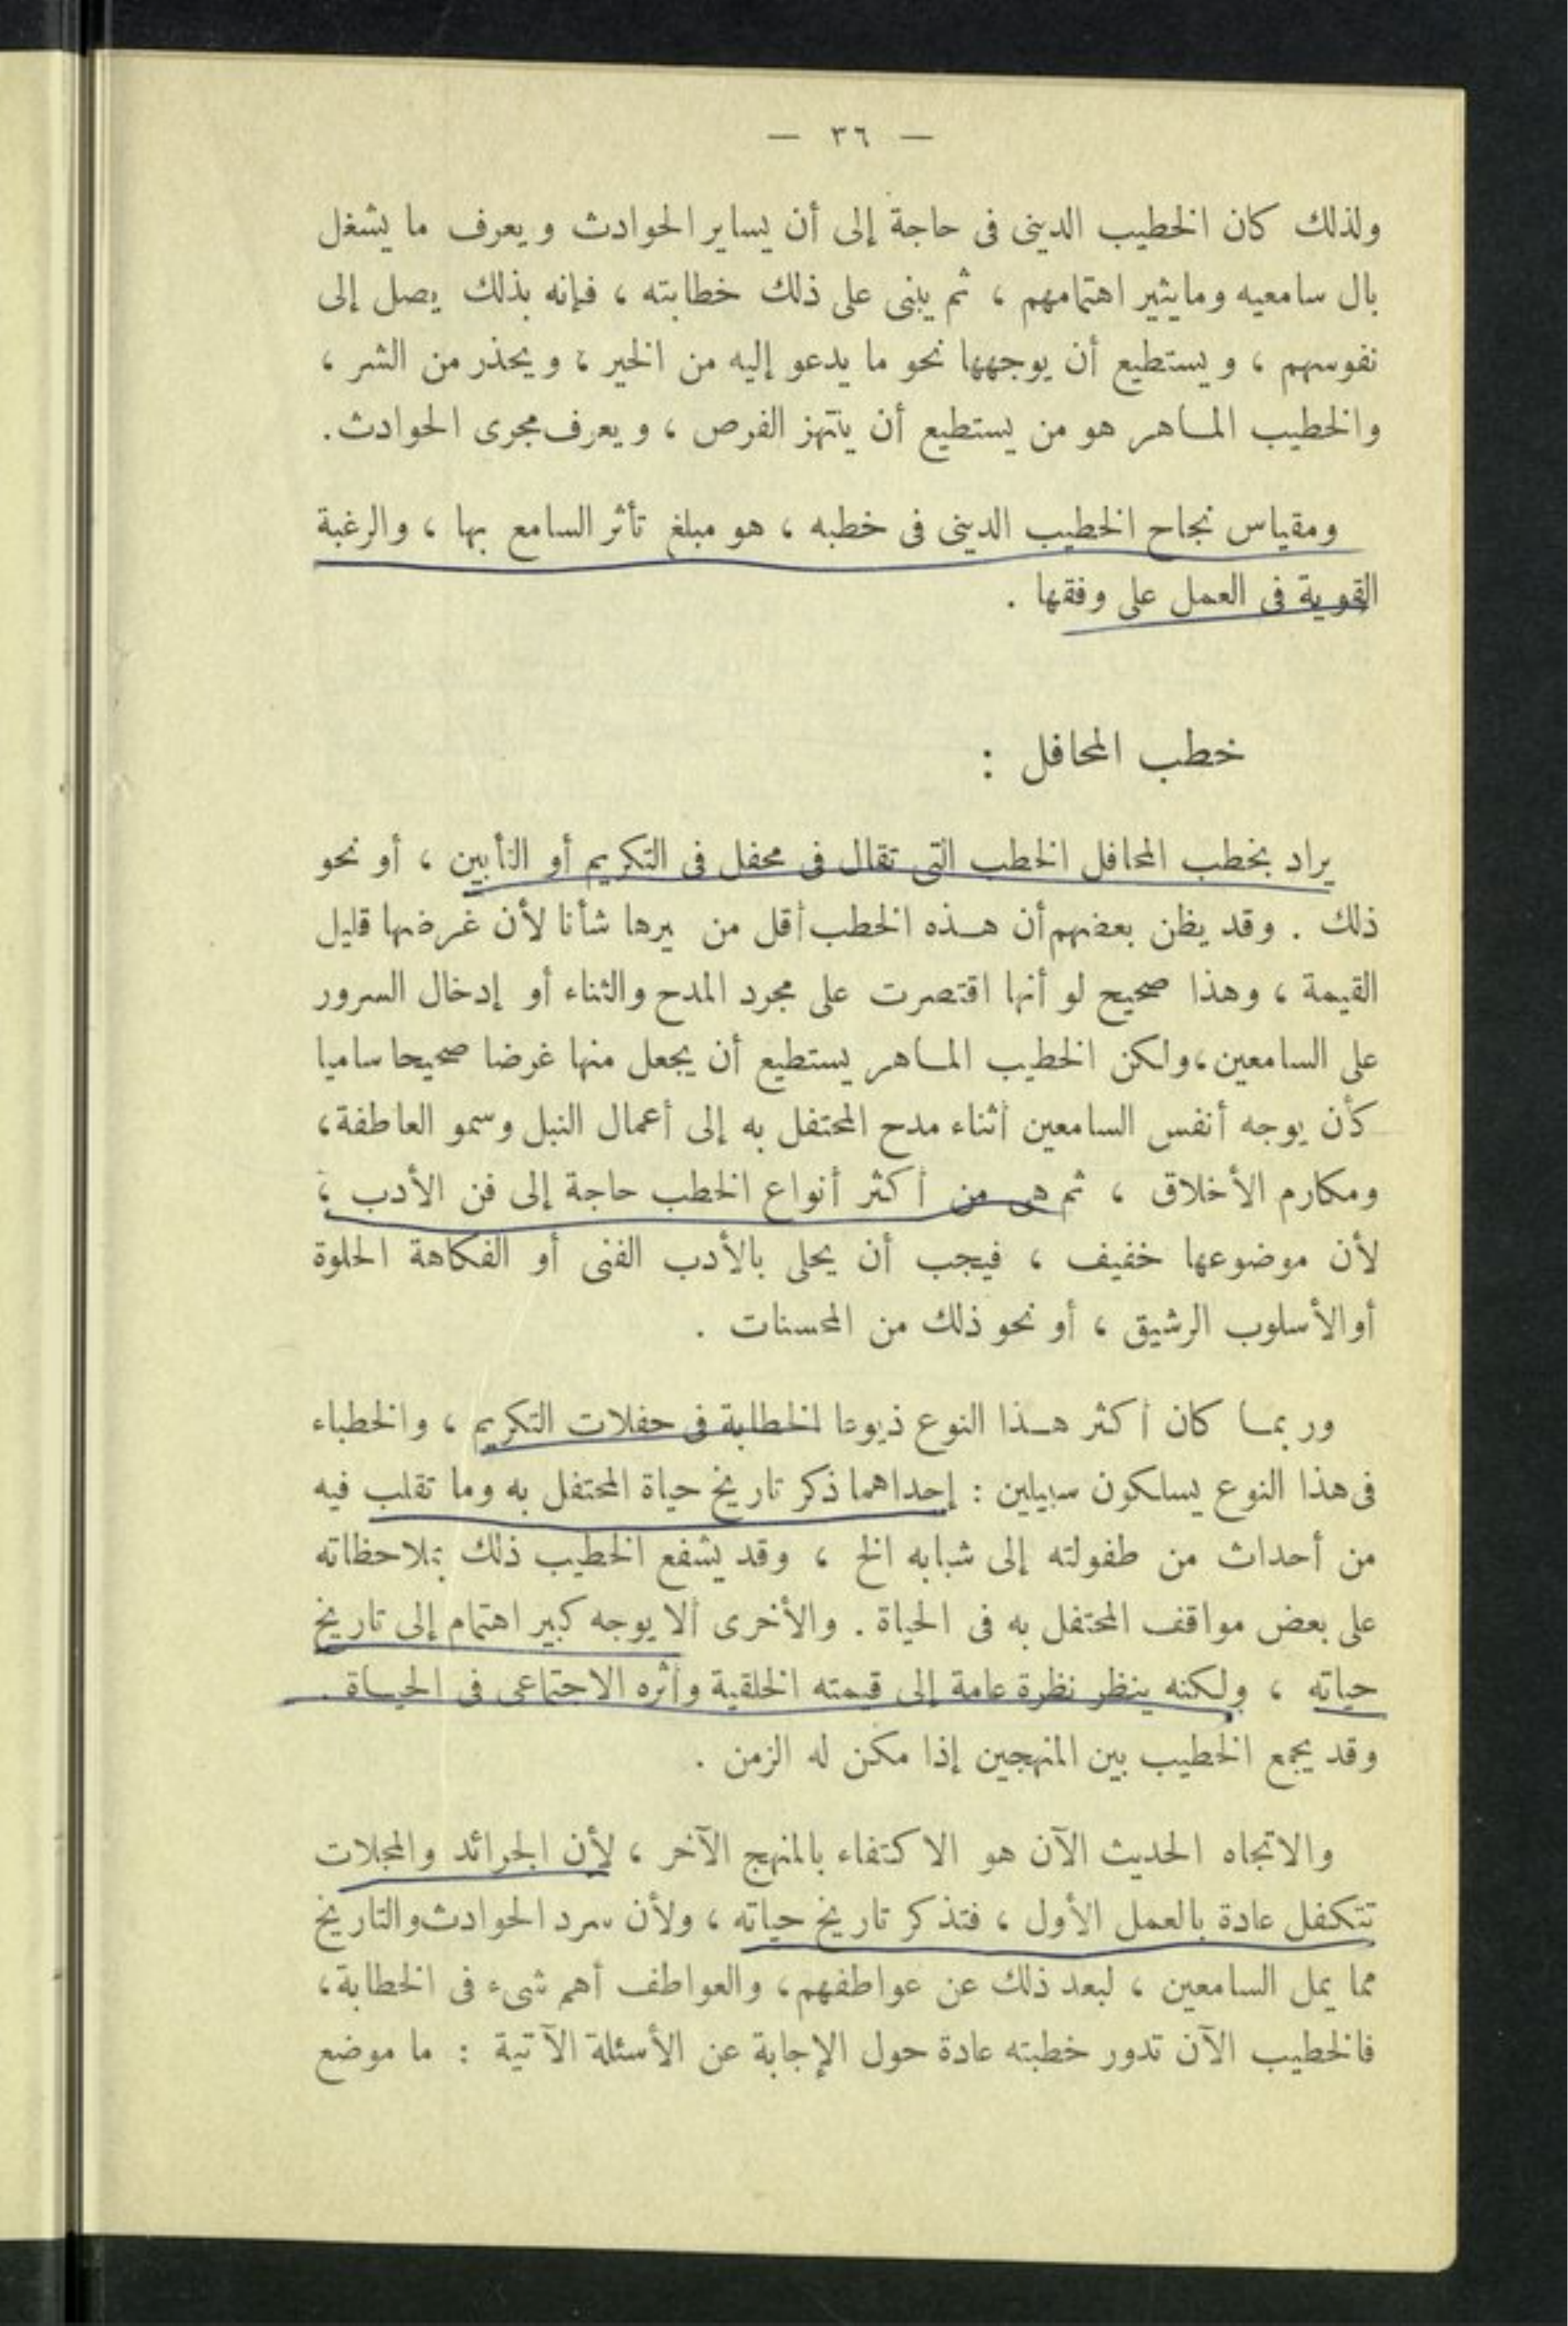 — ٣٦ —
ولذلك كان الخطيب الدينى فى حاجة إلى أن يساير الحوادث ويعرف ما يشغل
بال سامعيه وما يثير اهتمامهم ، ثم يبنى على ذلك خطابته ، فإنه بذلك يصل إلى
نفوسهم ، ويستطيع أن يوجهها نحو ما يدعو إليه من الخير ، ويحذر من الشر ،
والخطيب المـاهر هو من يستطيع أن ينتهز الفرص ، ويعرف مجرى الحوادث.
ومقياس نجاح الخطيب الدينى فى خطبه ، هو مبلغ تأثر السامع بها ، والرغبة
القوية فى العمل على وفقها .
خطب المحافل :
يراد بخطب المحافل الخطب التى تقال فى محفل فى التكريم أو التأبين ، أو نحو
ذلك . وقد يظن بعضهم أن هـذه الخطب أقل من يرها شأنا لأن غرضها قليل
القيمة ، وهذا صحيح لو أنها اقتصرت على مجرد المدح والثناء أو إدخال السرور
على السامعين ، ولكن الخطيب المـاهر يستطيع أن يجعل منها غرضا صحيحا ساميا
كأن يوجه أنفس السامعين أثناء مدح المحتفل به إلى أعمال النبل وسمو العاطفة ،
ومكارم الأخلاق ، ثم هى من أكثر أنواع الخطب حاجة إلى فن الأدب ،
لأن موضوعها خفيف ، فيجب أن يحلى بالأدب الفنى أو الفكاهة الحلوة
أو الأسلوب الرشيق ، أو نحو ذلك من المحسنات .
وربمـا كان أكثر هـذا النوع ذيوعا الخطابة فى حفلات التكريم ، والخطباء
فى هذا النوع يسلكون سبيلين : إحداهما ذكر تاريخ حياة المحتفل به وما تقلب فيه
من أحداث من طفولته إلى شبابه الخ ، وقد يشفع الخطيب ذلك بملاحظاته
على بعض مواقف المحتفل به فى الحياة . والأخرى ألا يوجه كبير اهتمام إلى تاريخ
حياته ، ولكنه ينظر نظرة عامة إلى قيمته الخلقية وأثره الاجتماعى فى الحيـاة .
وقد يجمع الخطيب بين المنهجين إذا مكن له الزمن .
والاتجاه الحديث الآن هو الاكتفاء بالمنهج الآخر ، لأن الجرائد والمجلات
تتكفل عادة بالعمل الأول ، فتذكر تاريخ حياته ، ولأن سرد الحوادث والتاريخ
مما يمل السامعين ، لبعد ذلك عن عواطفهم ، والعواطف أهم شىء فى الخطابة ،
فالخطيب الآن تدور خطبته عادة حول الإجابة عن الأسئلة الآتية : ما موضع